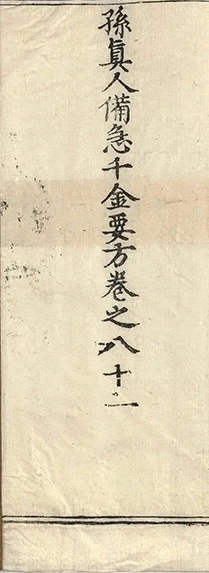 孫真人備急千金要方卷之八十二